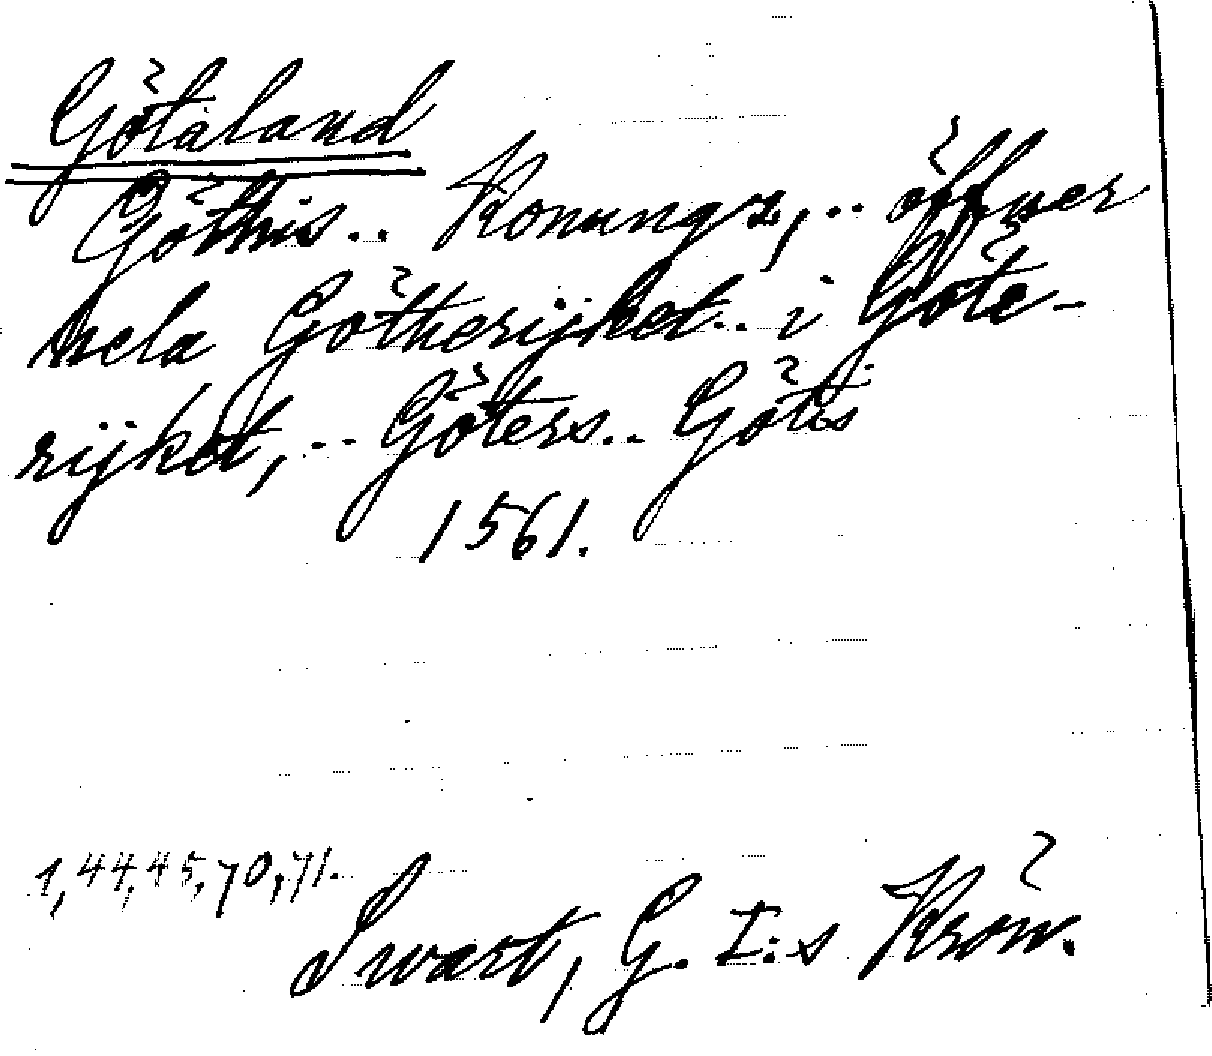 Götaland
Göthis.. Konungz,.. öffuer
hela Götherijket.. i Göte-
rijket,.. Göters.. Götis
1561.
1, 44, 45, 70, 71.
Swart, G. I:s Krön.